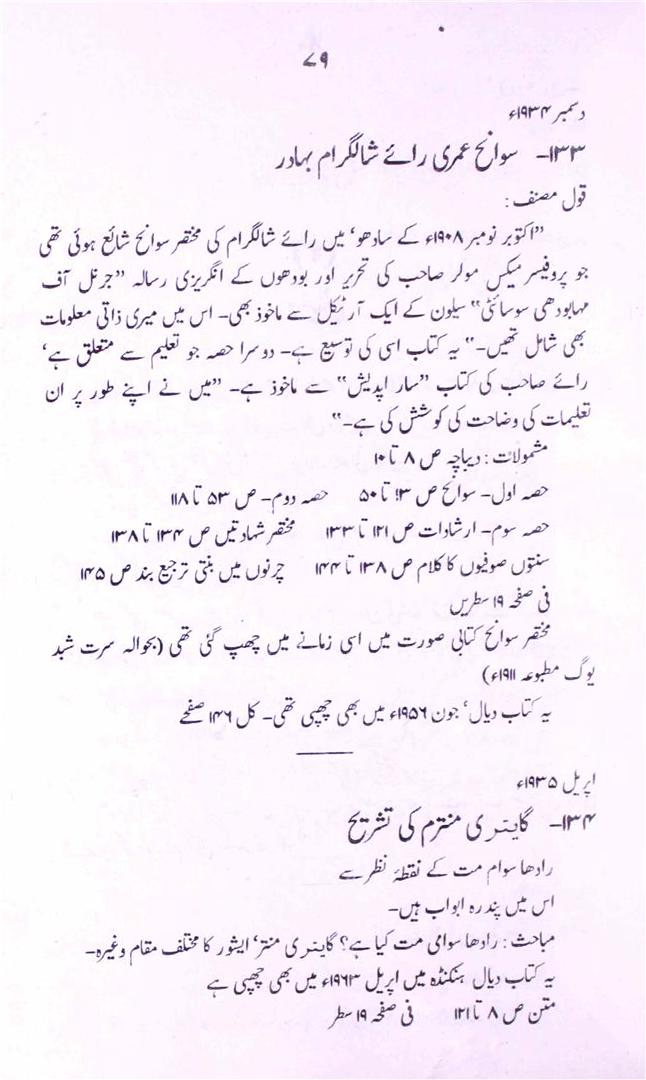 ۷۹
دسمبر ۱۹۳۴ء
۱۳۳- سوانح عمری رائے شالگرام بہادر
قول مصنف :
”اکتوبر نومبر ۱۹۰۸ء کے سادھو‘ میں رائے شالگرام کی مختصر سوانح شائع ہوئی تھی
جو پروفیسر میکس مولر صاحب کی تحریر اور بودھوں کے انگریزی رسالہ ”جرنل آف
مہابودھی سوسائٹی“ سیلون کے ایک آرٹیکل سے ماخوذ بھی- اس میں میری ذاتی معلومات
بھی شامل تھیں-“ یہ کتاب اسی کی توسیع ہے- دوسرا حصہ جو تعلیم سے متعلق ہے‘
رائے صاحب کی کتاب ”سار اپدیش“ سے ماخوذ ہے- ”میں نے اپنے طور پر ان
تعلیمات کی وضاحت کی کوشش کی ہے-“
مشمولات : دیباچہ ص ۸ تا ۱۰
حصہ اول- سوانح ص ۱۳ تا ۵۰ حصہ دوم- ص ۵۳ تا ۱۱۸
حصہ سوم- ارشادات ص ۱۲۱ تا ۱۳۳ مختصر شہادتیں ص ۱۳۴ تا ۱۳۸
سنتوں صوفیوں کا کلام ص ۱۳۸ تا ۱۴۴ چرنوں میں بنتی ترجیع بند ص ۱۴۵
فی صفحہ ۱۹ سطریں
مختصر سوانح کتابی صورت میں اسی زمانے میں چھپ گئی تھی (بحوالہ سرت شبد
یوگ مطبوعہ ۱۹۱۱ء)
یہ کتاب دیال‘ جون ۱۹۵۶ء میں بھی چھپی تھی- کل ۱۴۶ صفحے
اپریل ۱۹۳۵ء
۱۳۴- گایتری منترم کی تشریح
رادھا سوام مت کے نقطۂ نظر سے
اس میں پندرہ ابواب ہیں-
مباحث : رادھا سوامی مت کیا ہے؟ گایتری منتر‘ ایشور کا مختلف مقام وغیرہ-
یہ کتاب دیال ہنکنڈہ میں اپریل ۱۹۶۳ء میں بھی چھپی ہے
متن ص ۸ تا ۱۲۱ فی صفحہ ۱۹ سطر